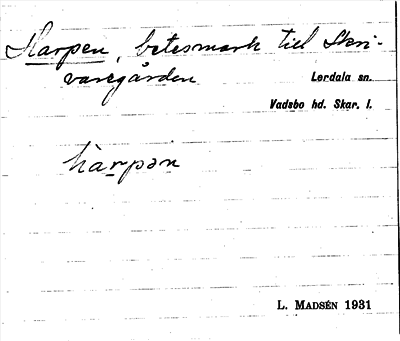 Harpen, betesmark till Skri-
varegården
Lerdala sn.
Vadsbo hd. Skar. l.
hàrpən
L. MADSÉN 1931